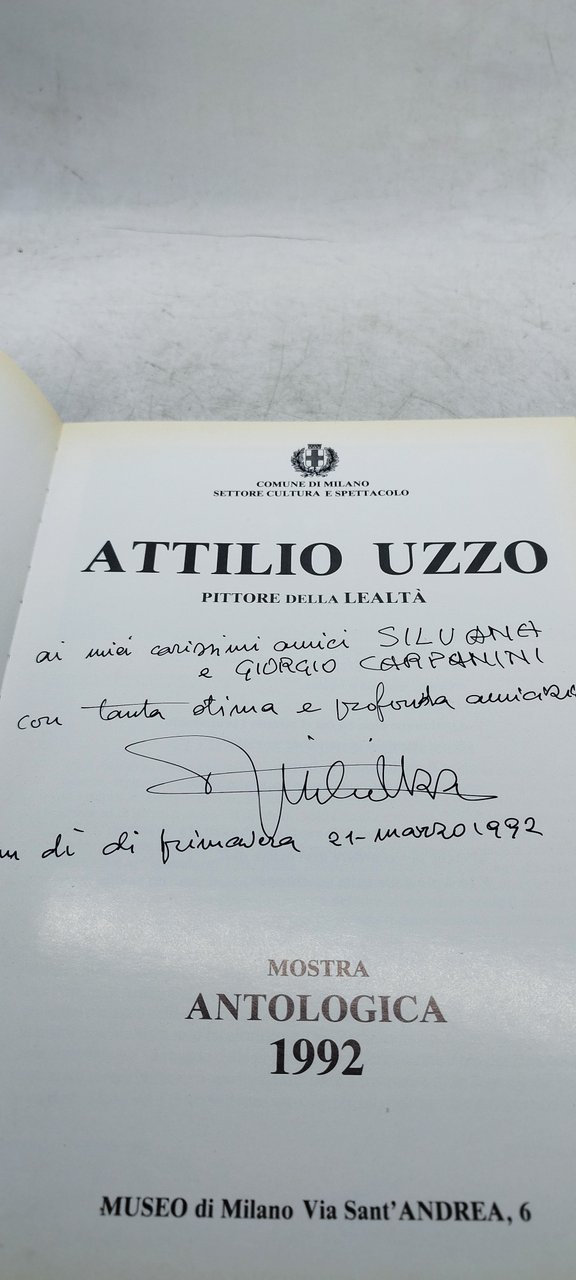 COMUNE DI MILANO
SETTORE CULTURA E SPETTACOLO
ATTILIO UZZO
PITTORE DELLA LEALTÀ
ai miei carissimi amici SILVANA
e GIORGIO CARPANINI
con tanta stima e profonda
dì di primavera 21-marzo 1992
MOSTRA
ANTOLOGICA
1992
MUSEO di Milano Via Sant'ANDREA, 6